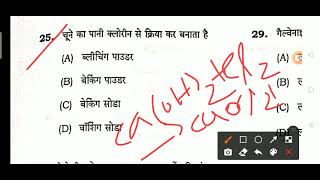 25. चूने का पानी क्लोरीन से क्रिया कर बनाता है
(A) ब्लीचिंग पाउडर
(B) बेकिंग पाउडर
(C) बेकिंग सोडा
(D) वॉशिंग सोडा
Ca(OH)2 + Cl2
CaOCl2
29. गैल्वेनाइ
(A)
(B)
(C)
(D)